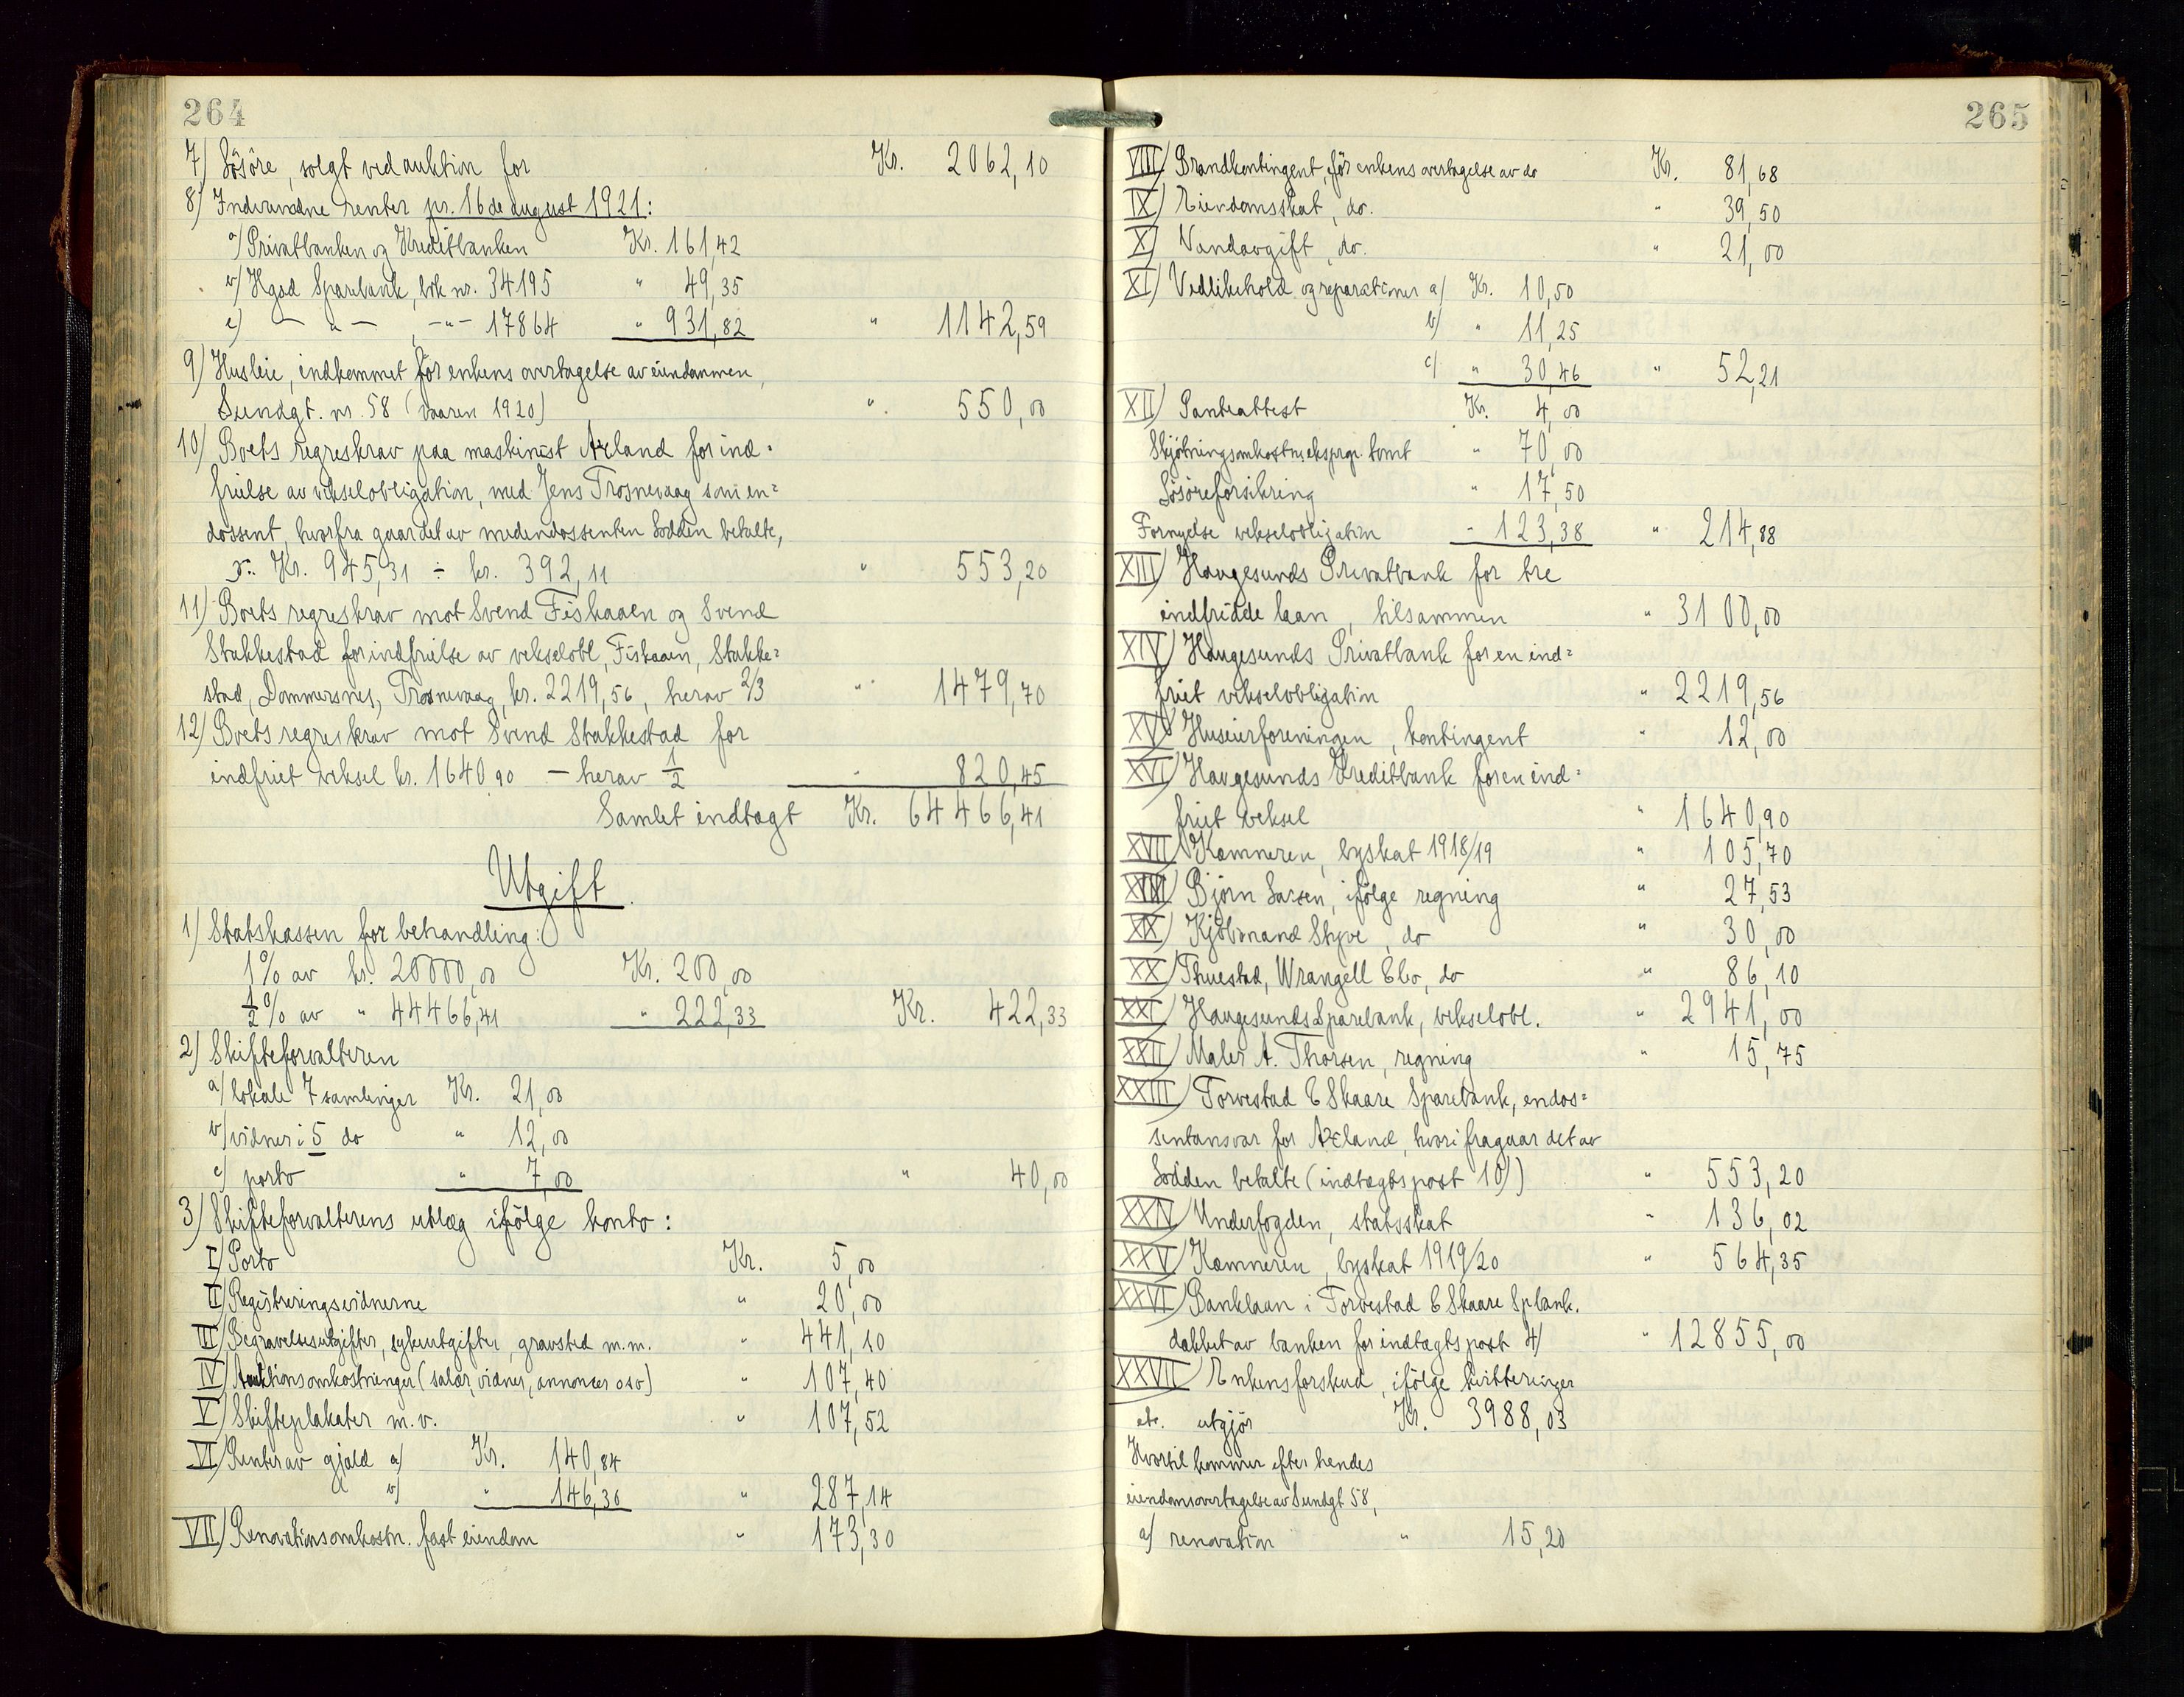 264
7) Løsøre, solgt ved auktion for Kr. 2062,10
8) Indvundne renter pr. 16de august 1921:
a) Privatbanken og Kreditbanken Kr. 161,42
b) Hgsd Sparebank, bok nr. 34195 " 49,35
c) — " — , — " — 17864 " 931,82 " 1142,59
9) Husleie, indkommet før enkens overtagelse av eiendommen,
Sundgt. nr. 58 (vaaren 1920) " 550,00
10) Boets regreskrav paa maskinist Axland for ind-
frielse av vekselobligation, med Jens Trosnevaag som en=
dossent, hvorfra gaar det av medendossenten Lodden betalte,
Kr. 945,31 ÷ kr. 392,11 " 553,20
11) Boets regreskrav mot Svend Fiskaaen og Svend
Stakkestad for indfrielse av vekselobl, Fiskaaen, Stakke=
stad, Dommersnes, Trosnevaag, kr. 2219,56, herav 2/3 " 1479,70
12) Boets regreskrav mot Svend Stakkestad for
indfriet veksel kr. 1640,90 — herav 1/2 " 820,45
Samlet indtægt Kr. 64466,41
Utgift.
1) Statskassen for behandling:
1% av kr. 20000,00 Kr. 200,00
1/2% av " 44466,41 " 222,33 Kr. 422,33
2) Skifteforvalteren
a) lokale 7 samlinger Kr. 21,00
b) vidner i 5 do " 12,00
c) porto " 7,00 " 40,00
3) Skifteforvalterens utlæg ifølge konto:
I) Porto Kr. 5,00
II) Registreringsvidnerne " 20,00
III) Begravelsesutgifter, sykeutgifter, gravsted m.m. " 441,10
IV) Auktionsomkostninger (salær, vidner, annonser osv) " 107,40
V) Skifteplakater m.v. " 107,52
VI) Renter av gjæld a) Kr. 140,84
b) " 146,30 " 287,14
VII) Renovationsomkostn. fast eiendom " 173,30
265
VIII) Brandkontingent, før enkens overtagelse av do Kr. 81,68
IX) Eiendomsskat, do. " 39,50
X) Vandavgift, do. " 21,00
XI) Vedlikehold og reparationer a) Kr. 10,50
b) " 11,25
c) " 30,46 " 52,21
XII) Panteattest Kr. 4,00
Skjøtningsomkostn. ekspr. tomt " 70,00
Løsøreforsikring " 17,50
Fornyelse vekselobligation - 123,38 " 214,88
XIII) Haugesunds Privatbank for tre
indfridde laan, tilsammen " 3100,00
XIV) Haugesunds Privatbank for en ind=
friet vekselobligation " 2219,56
XV) Huseierforeningen, kontingent " 12,00
XVI) Haugesunds Kreditbank for en ind=
friet veksel " 1640,90
XVII) Kæmneren, byskat 1918/19 " 105,70
XVIII) Bjørn Larsen, ifølge regning " 27,53
XIX) Kjøbmand Styve, do " 30,00
XX) Thuestad, Wrangell & Co, do " 86,10
XXI) Haugesunds Sparebank, vekselobl. " 2941,00
XXII) Maler A. Thorsen, regning " 15,75
XXIII) Torvestad & Skaare Sparebank, endos=
sentansvar for Axland, hvori fragaar det av
Lodden betalte (indtægtspost 10)) " 553,20
XXIV) Underfogden, statsskat " 136,02
XXV) Kæmneren, byskat 1919/20 " 564,35
XXVI) Banklaan i Torvestad & Skaare Spbank.
dækket av banken for indtægtspost 4) " 12855,00
XXVII) Enkens forskud, ifølge kvitteringer
etc. utgjør Kr. 3988,03
Hvortil kommer efter hendes
eiendomsovertagelse av Sundgt 58,
a) renovation " 15,20